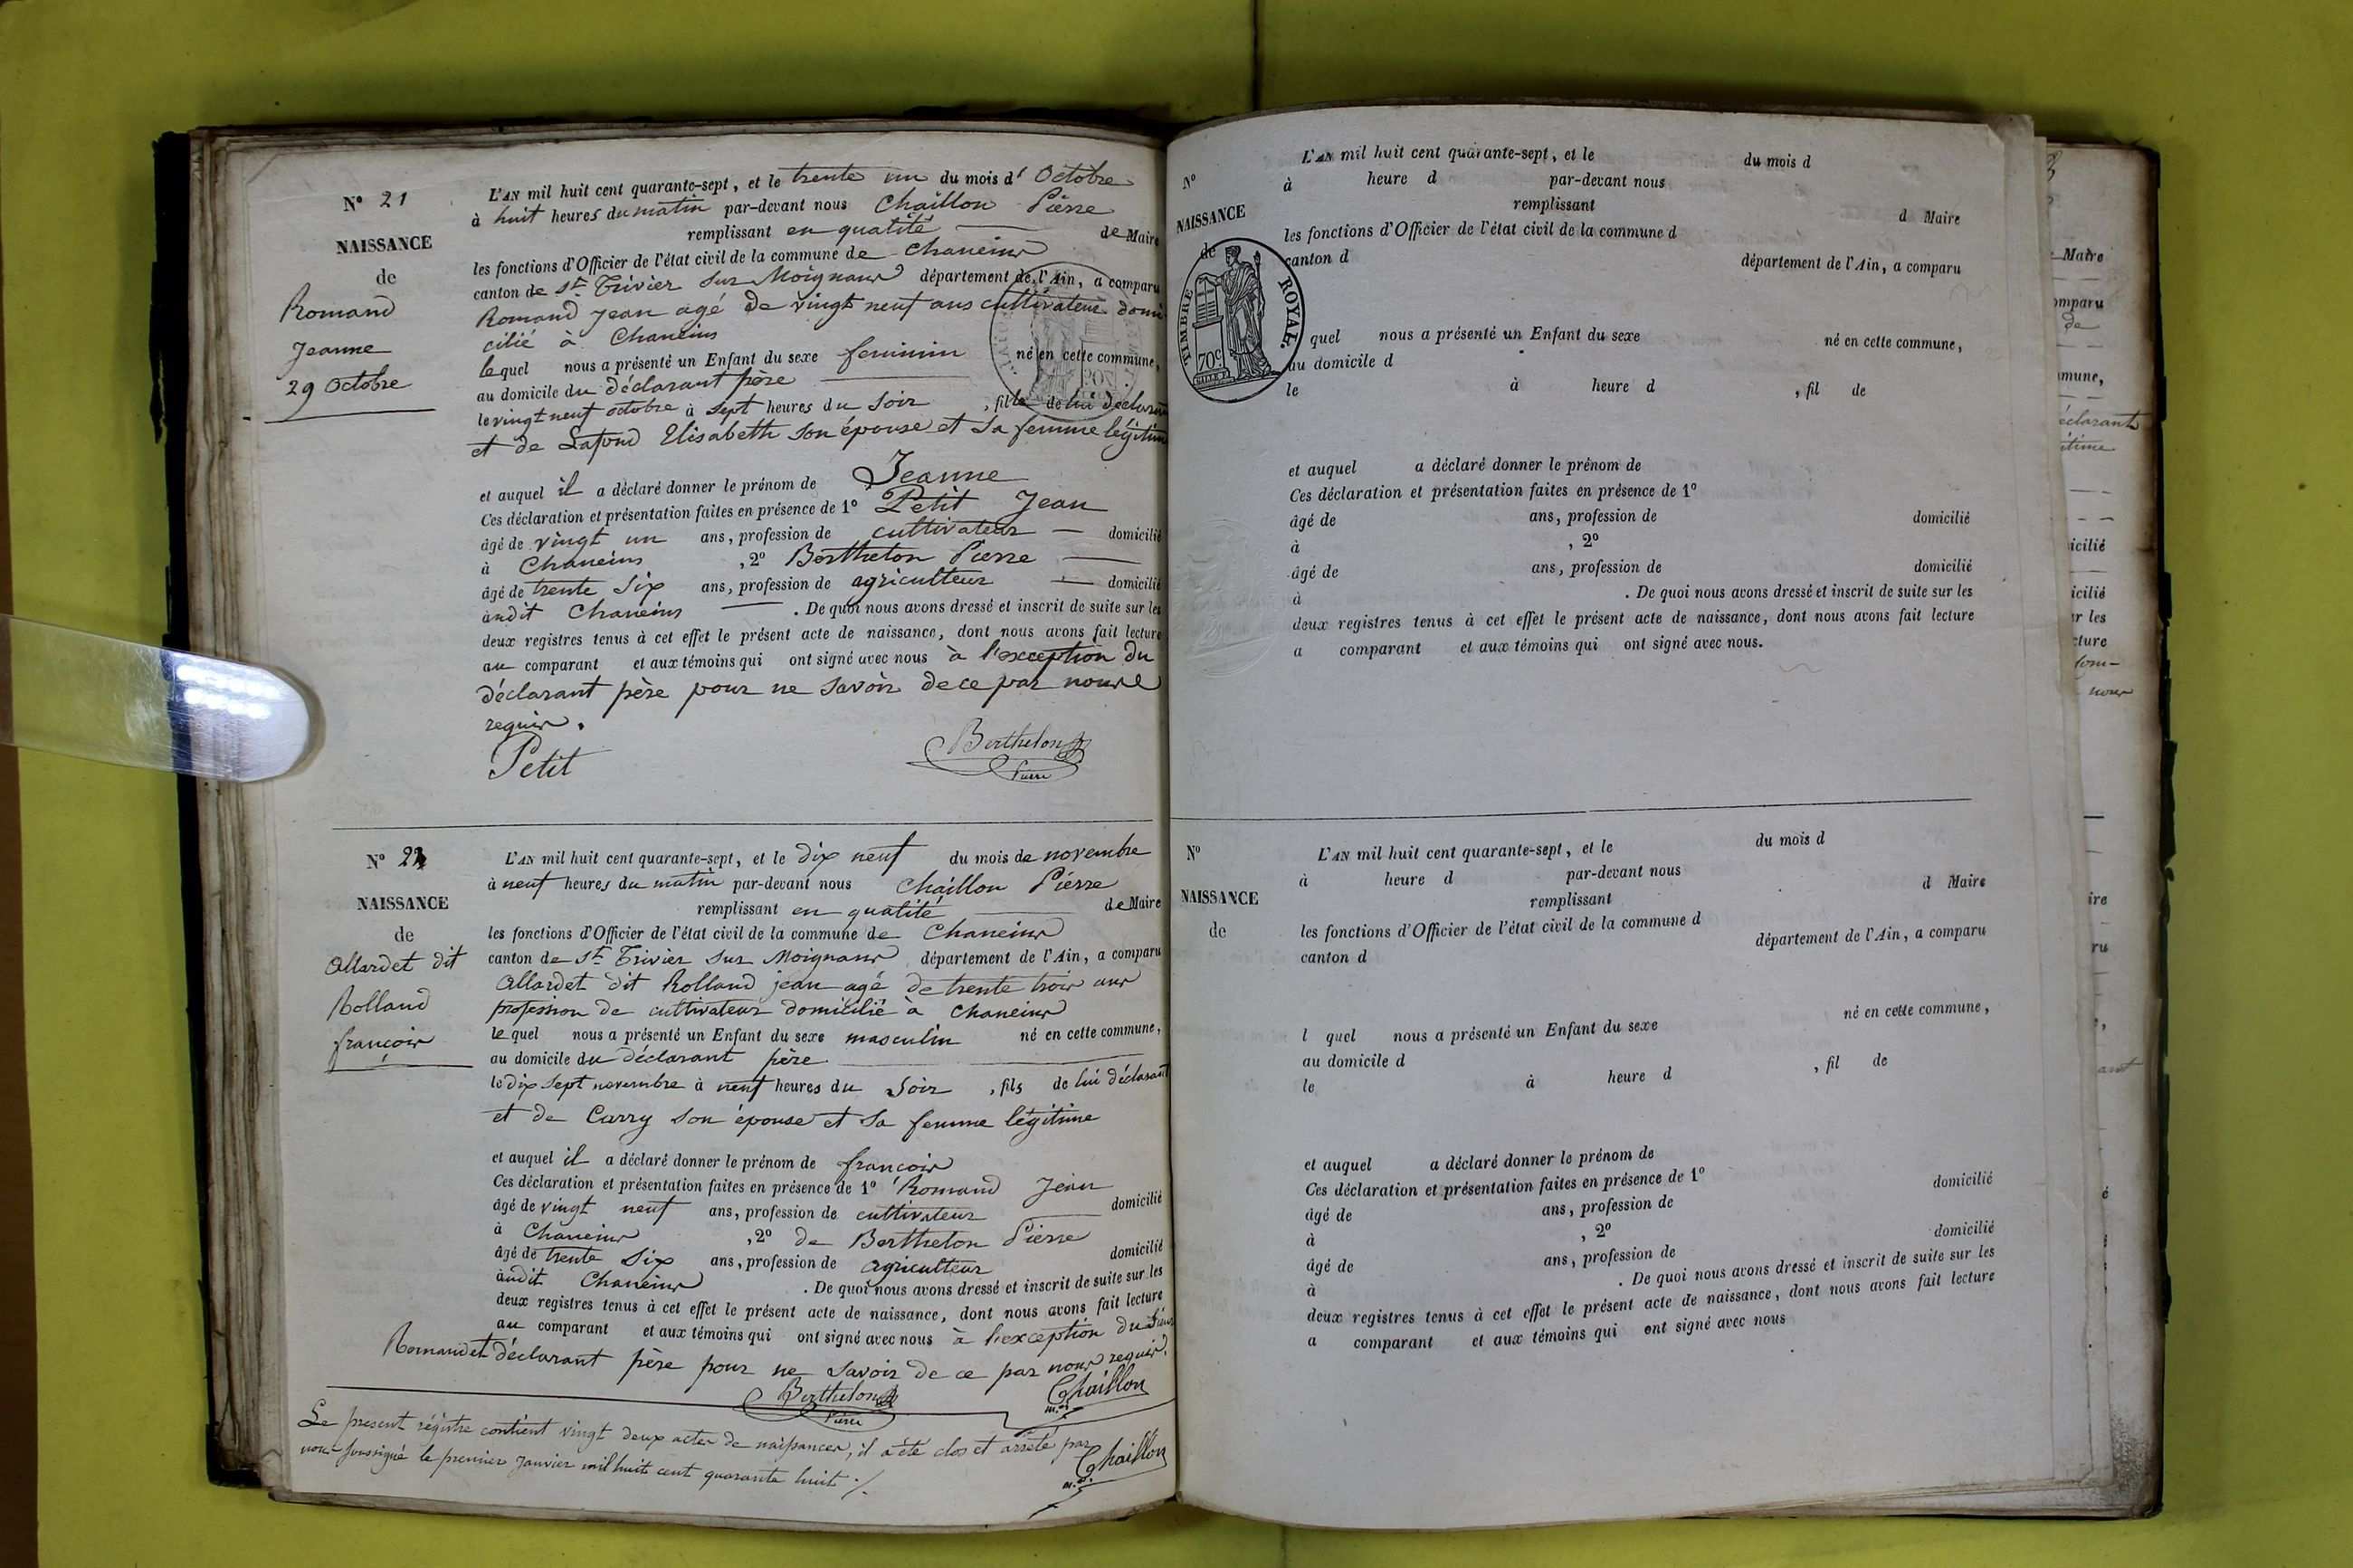 N° 21
NAISSANCE
de
Romand
Jeanne
29 Octobre
L'AN mil huit cent quarante-sept, et le trente un du mois d' Octobre
à huit heures du matin par-devant nous Chaillon Pierre
remplissant en qualité de Maire
les fonctions d'Officier de l'état civil de la commune de Chaneins
canton de St Trivier sur Moignans département de l'Ain, a comparu
Romand Jean agé de vingt neuf ans cultivateur domi
cilié à Chaneins
lequel nous a présenté un Enfant du sexe feminin né en cette commune,
au domicile du déclarant père
le vingt neuf octobre à sept heures du soir , fille de lui déclarant
et de Lafond Elisabeth son épouse et sa femme légitime
et auquel il a déclaré donner le prénom de Jeanne
Ces déclaration et présentation faites en présence de 1° Petit Jean
âgé de vingt un ans, profession de cultivateur domicilié
à Chaneins , 2° Berthelon Pierre
âgé de trente six ans, profession de agriculteur domicilié
audit Chaneins . De quoi nous avons dressé et inscrit de suite sur les
deux registres tenus à cet effet le présent acte de naissance, dont nous avons fait lecture
au comparant et aux témoins qui ont signé avec nous à l'exception du
déclarant père pour ne savoir de ce par nous
requis.
Petit Berthelon
Pierre
N° 22
NAISSANCE
de
Allardet dit
Rolland
françois
L'AN mil huit cent quarante-sept, et le dix neuf du mois de novembre
à neuf heures du matin par-devant nous Chaillon Pierre
remplissant en qualité de Maire
les fonctions d'Officier de l'état civil de la commune de Chaneins
canton de St Trivier sur Moignans département de l'Ain, a comparu
Allardet dit Rolland jean agé de trente trois ans
profession de cultivateur domicilié à Chaneins
lequel nous a présenté un Enfant du sexe masculin né en cette commune,
au domicile du déclarant père
le dix sept novembre à neuf heures du soir , fils de lui déclarant
et de Carry son épouse et sa femme légitime
et auquel il a déclaré donner le prénom de françois
Ces déclaration et présentation faites en présence de 1° Romand Jean
âgé de vingt neuf ans, profession de cultivateur domicilié
à Chaneins , 2° de Berthelon Pierre
âgé de trente six ans, profession de agriculteur domicilié
audit Chaneins . De quoi nous avons dressé et inscrit de suite sur les
deux registres tenus à cet effet le présent acte de naissance, dont nous avons fait lecture
au comparant et aux témoins qui ont signé avec nous à l'exception du
Romand et déclarant père pour ne savoir de ce par nous requis.
Berthelon Chaillon
Pierre
Le present régistre contient vingt deux actes de naissances, il a été clos et arrêté par
nous soussigné le premier Janvier mil huit cent quarante huit ./.
Chaillon
N°
NAISSANCE
de
TIMBRE ROYAL.
70c
L'AN mil huit cent quarante-sept, et le du mois d
à heure d par-devant nous
remplissant d Maire
les fonctions d'Officier de l'état civil de la commune d
canton d département de l'Ain, a comparu
quel nous a présenté un Enfant du sexe né en cette commune,
au domicile d
le à heure d , fil de
et auquel a déclaré donner le prénom de
Ces déclaration et présentation faites en présence de 1°
âgé de ans, profession de domicilié
à , 2°
âgé de ans, profession de domicilié
à . De quoi nous avons dressé et inscrit de suite sur les
deux registres tenus à cet effet le présent acte de naissance, dont nous avons fait lecture
a comparant et aux témoins qui ont signé avec nous.
N°
NAISSANCE
de
L'AN mil huit cent quarante-sept, et le du mois d
à heure d par-devant nous
remplissant d Maire
les fonctions d'Officier de l'état civil de la commune d
canton d département de l'Ain, a comparu
l quel nous a présenté un Enfant du sexe né en cette commune,
au domicile d
le à heure d , fil de
et auquel a déclaré donner le prénom de
Ces déclaration et présentation faites en présence de 1°
âgé de ans, profession de domicilié
à , 2°
âgé de ans, profession de domicilié
à . De quoi nous avons dressé et inscrit de suite sur les
deux registres tenus à cet effet le présent acte de naissance, dont nous avons fait lecture
a comparant et aux témoins qui ont signé avec nous